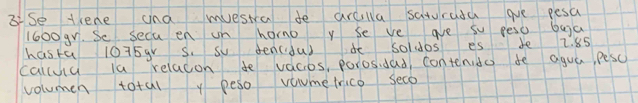 3- Se tiene una muestra de arcilla saturada que pesa
1600gr. Se seca en un horno y se ve que su peso baja
hasta 1075gr si su densidad de solidos es de 2.85
calcula la relacon de vacios, porosidad, contenido de agua, peso
volumen total y peso volumetrico seco